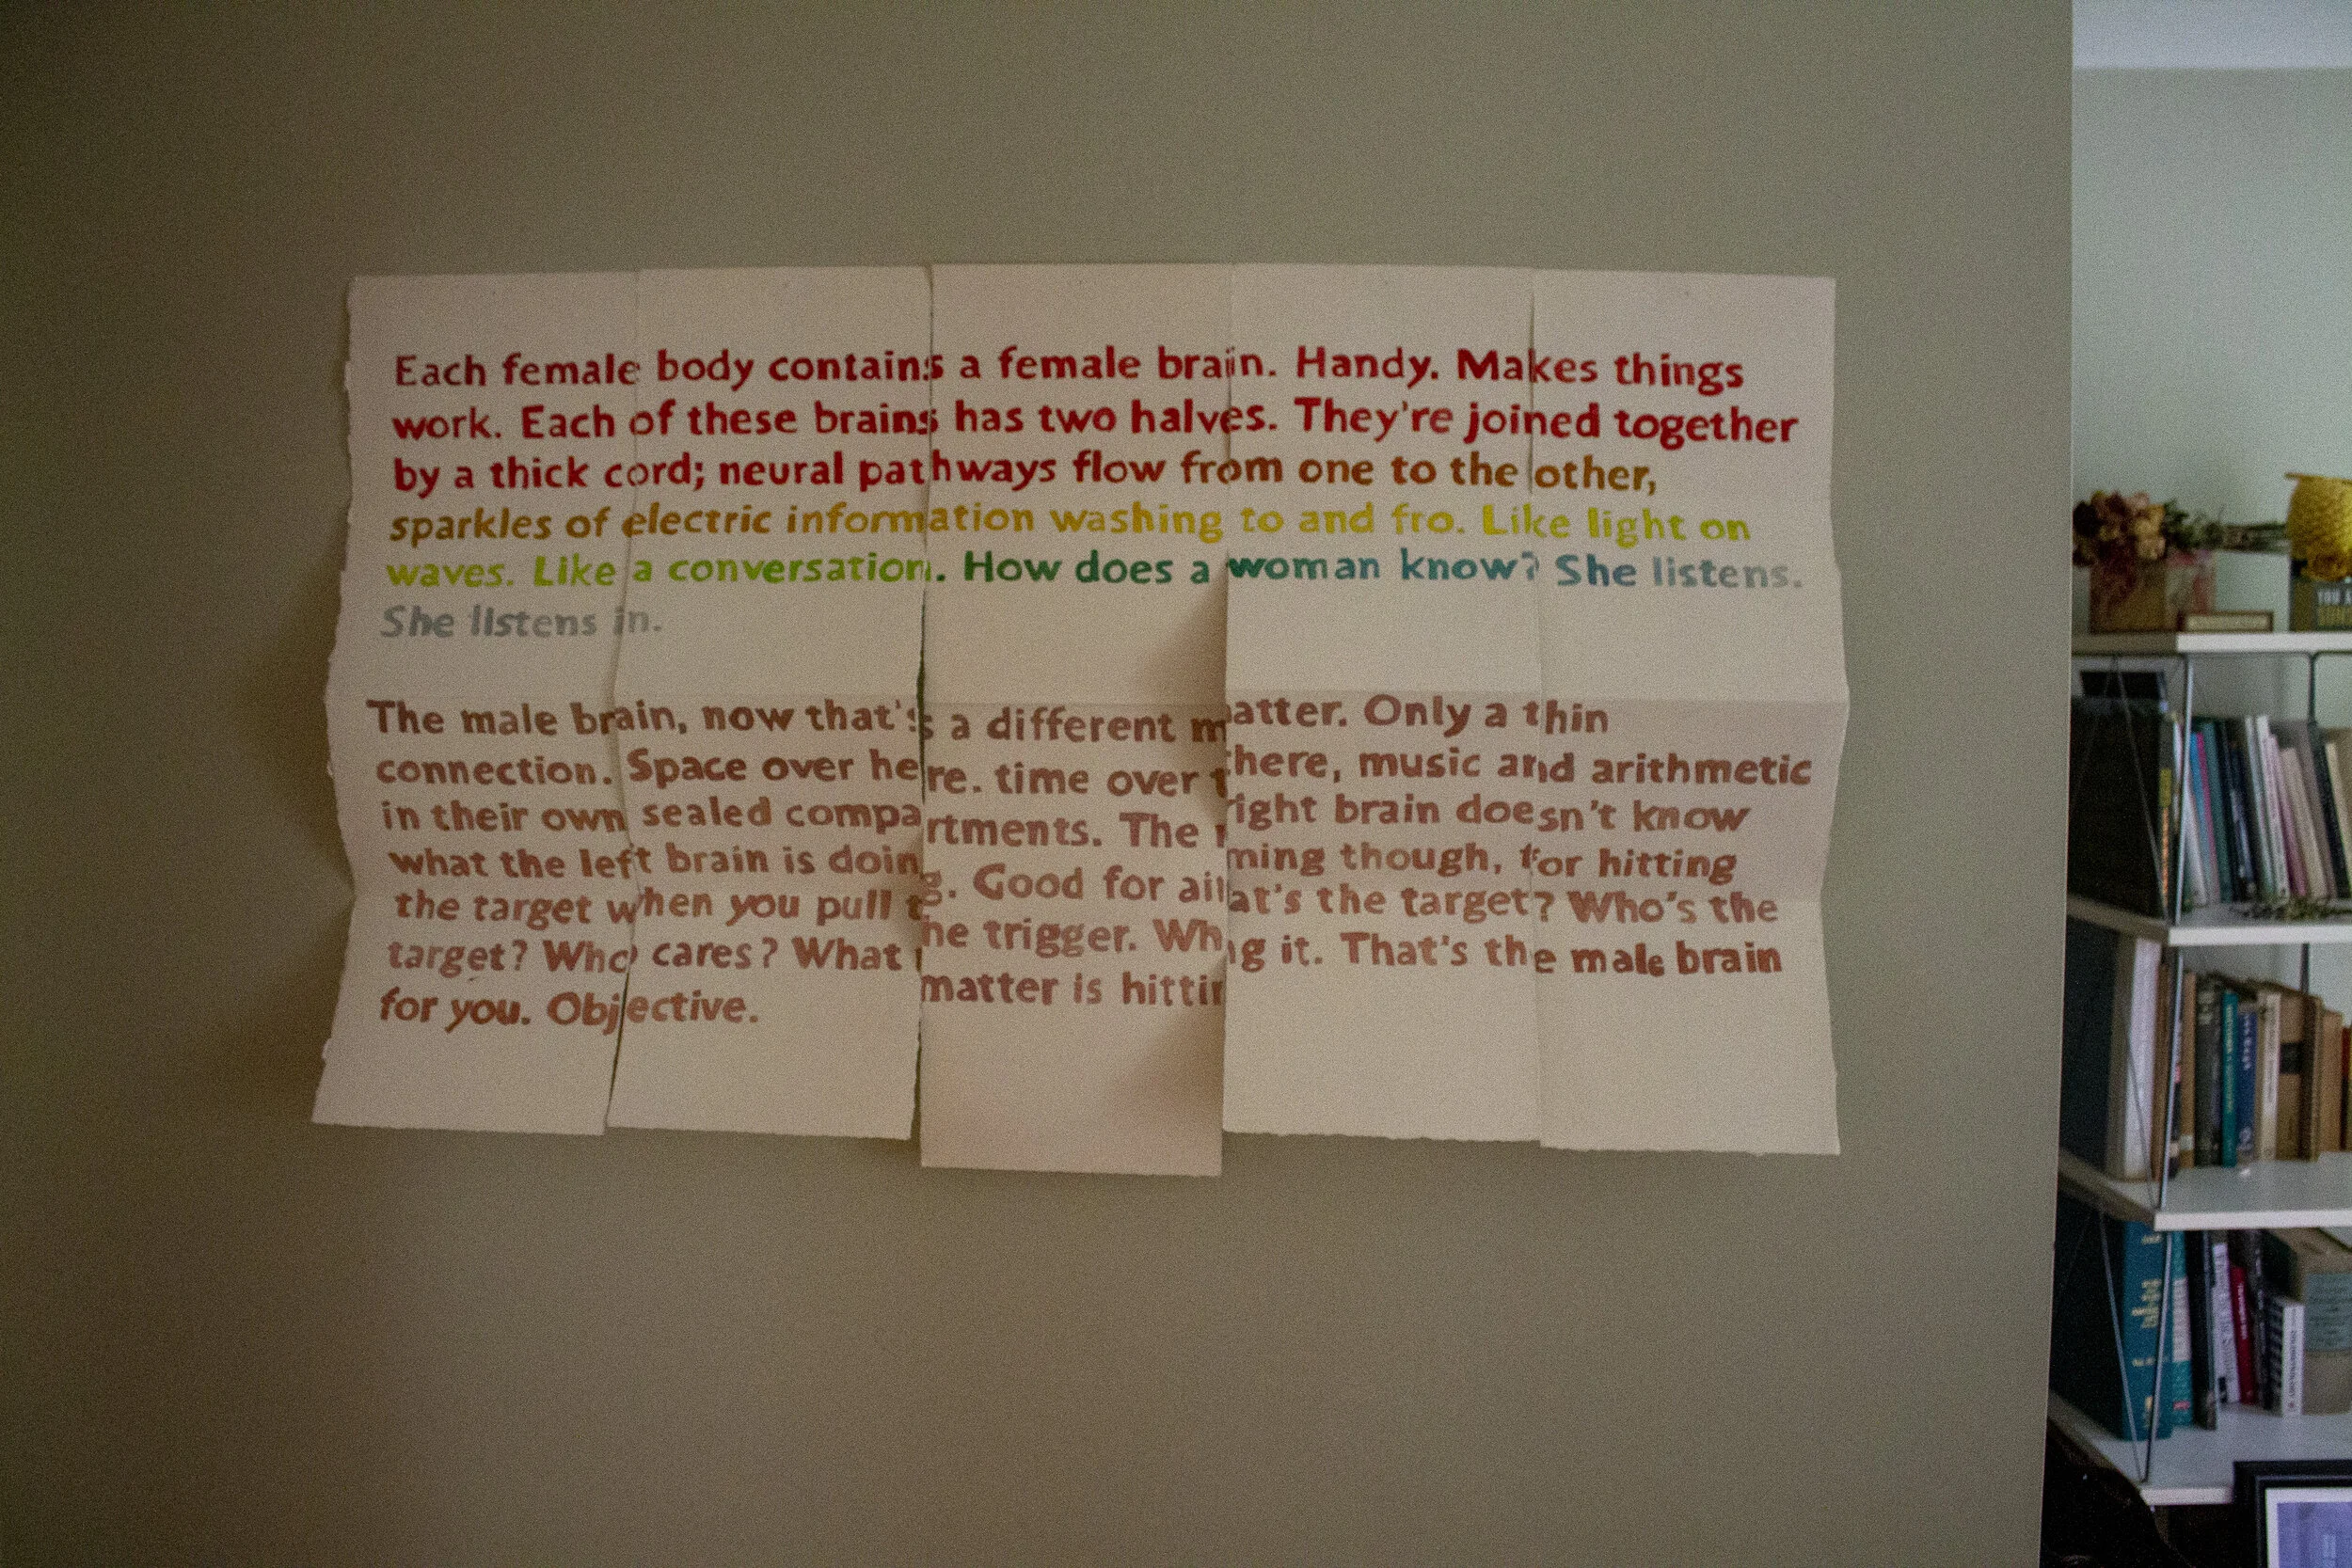 Each female body contains a female brain. Handy. Makes things
work. Each of these brains has two halves. They're joined together
by a thick cord; neural pathways flow from one to the other,
sparkles of electric information washing to and fro. Like light on
waves. Like a conversation. How does a woman know? She listens.
She listens in.
The male brain, now that's a different matter. Only a thin
connection. Space over here. time over there, music and arithmetic
in their own sealed compartments. The right brain doesn't know
what the left brain is doing. Good for aiming though, for hitting
the target when you pull the trigger. What's the target? Who's the
target? Who cares? What matter is hitting it. That's the male brain
for you. Objective.